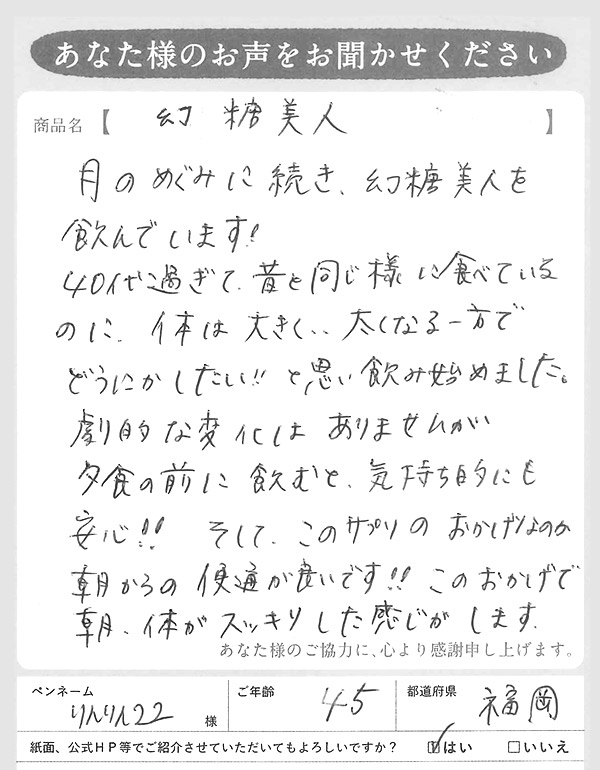 あなた様のお声をお聞かせください
商品名【 幻糖美人 】
月のめぐみに続き、幻糖美人を
飲んでいます!
40代過ぎて、昔と同じ様に食べている
のに、体は大きく、、太くなる一方で
どうにかしたい!!と思い飲み始めました。
劇的な変化はありませんが
夕食の前に飲むと、気持ち的にも
安心!! そして、このサプリのおかげなのか
朝からの便通が良いです!!このおかげで
朝、体がスッキリした感じがします。
あなた様のご協力に、心より感謝申し上げます。
ペンネーム りんりん22 様 ご年齢 45 都道府県 福岡
紙面、公式HP等でご紹介させていただいてもよろしいですか? ☑はい □いいえ